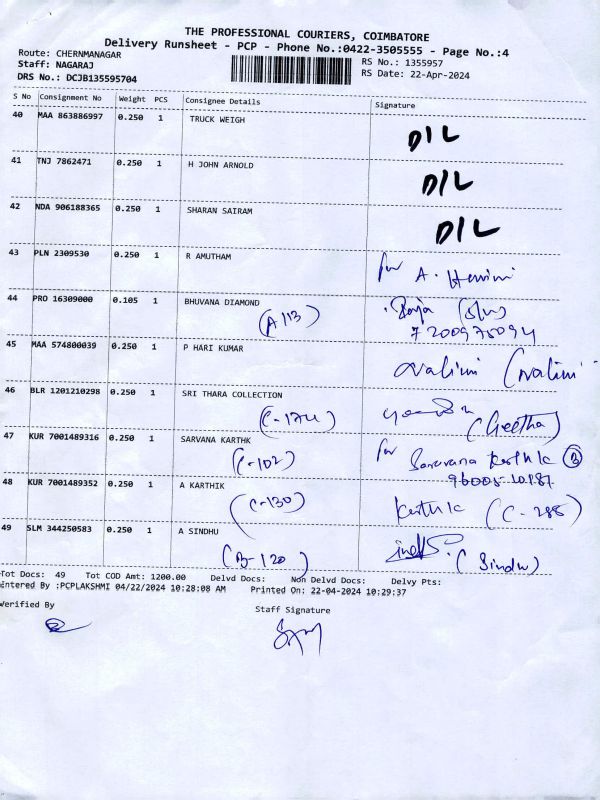 THE PROFESSIONAL COURIERS, COIMBATORE
Delivery Runsheet - PCP - Phone No.:0422-3505555 - Page No.:4
Route: CHERNMANAGAR RS No.: 1355957
Staff: NAGARAJ RS Date: 22-Apr-2024
DRS No.: DCJB135595704
S No Consignment No Weight PCS Consignee Details Signature
40 MAA 863886997 0.250 1 TRUCK WEIGH D/L
41 TNJ 7862471 0.250 1 H JOHN ARNOLD D/L
42 NDA 906188365 0.250 1 SHARAN SAIRAM D/L
43 PLN 2309530 0.250 1 R AMUTHAM for A.
44 PRO 16309000 0.105 1 BHUVANA DIAMOND
(A 113) 7200975094
45 MAA 574800039 0.250 1 P HARI KUMAR Nalini (Nalini
46 BLR 1201210298 0.250 1 SRI THARA COLLECTION
(C-174) (Geetha)
47 KUR 7001489316 0.250 1 SARVANA KARTHK for Saravana Karthik
(C-102)
48 KUR 7001489352 0.250 1 A KARTHIK
(C-130) Karthik (C-288)
49 SLM 344250583 0.250 1 A SINDHU
(B-120) (Sindu)
Tot Docs: 49 Tot COD Amt: 1200.00 Delvd Docs: Non Delvd Docs: Delvy Pts:
Entered By :PCPLAKSHMI 04/22/2024 10:28:08 AM Printed On: 22-04-2024 10:29:37
Verified By Staff Signature